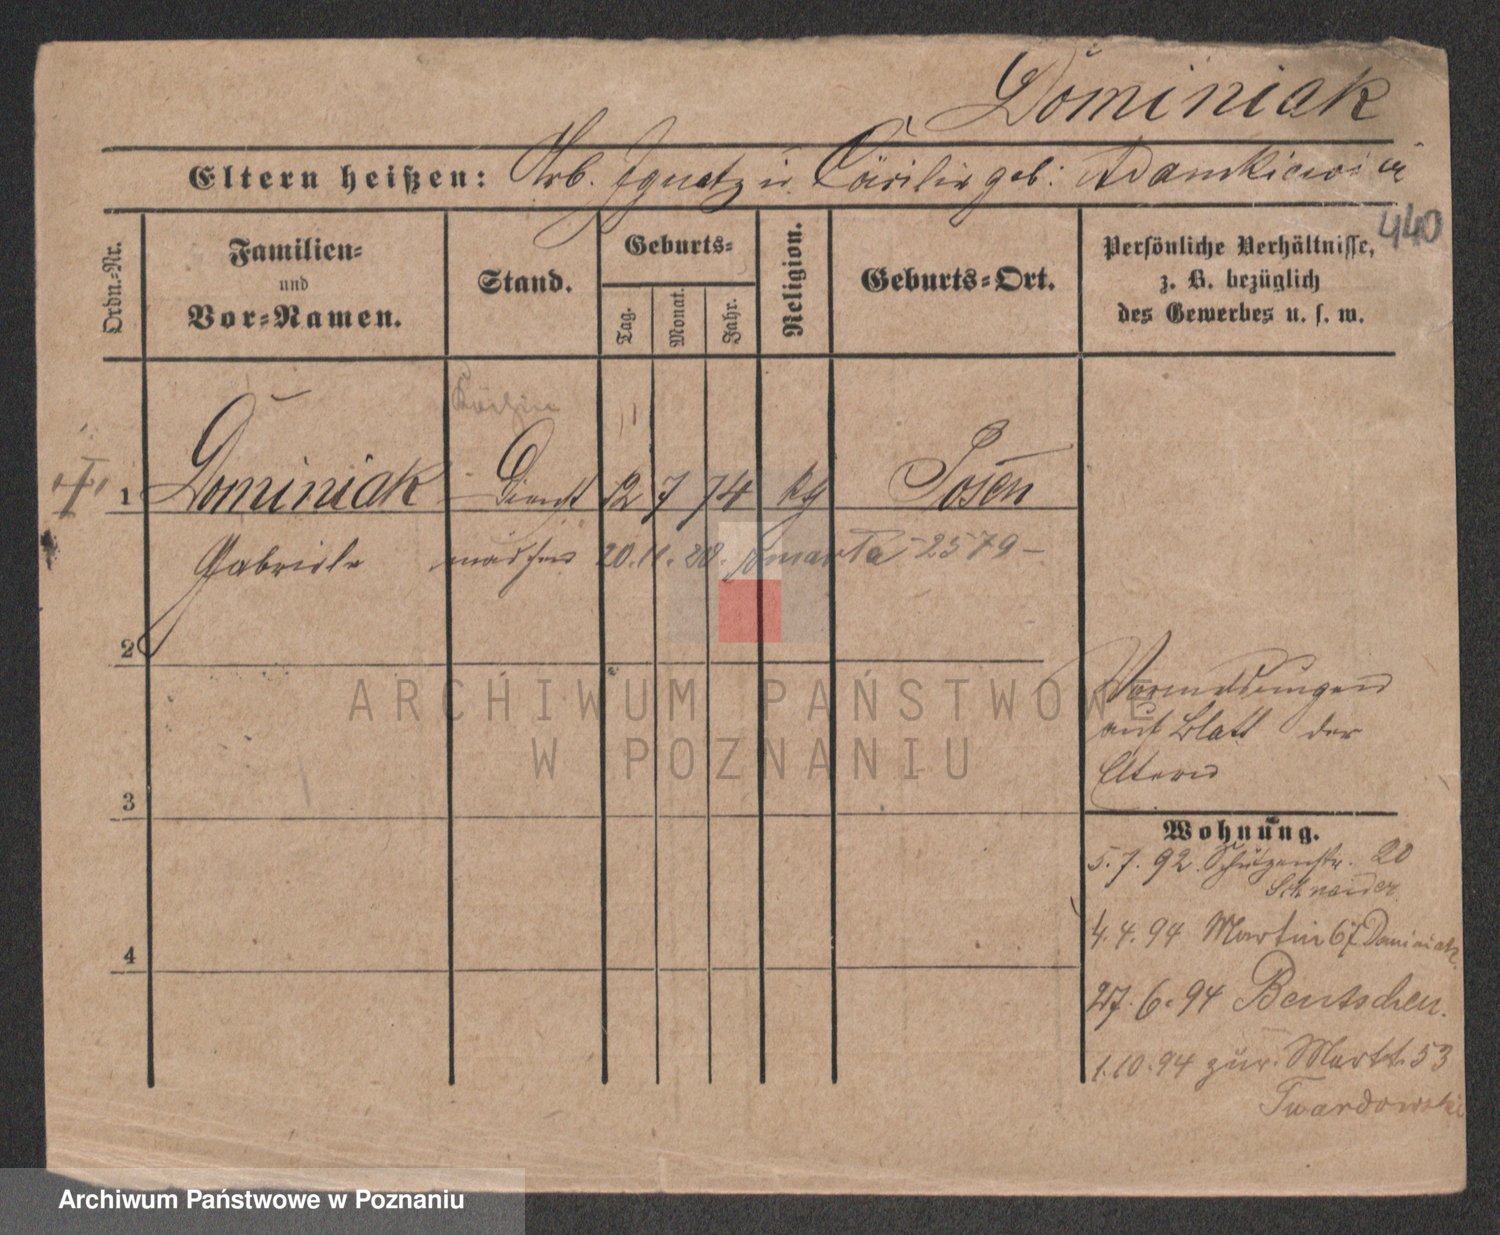 Dominiak
Eltern heißen: Arb. Ignatz u Cäcilie geb: Adamkiewicz
440
Ordn.-Nr.
Familien- und Vor-Namen.
Stand.
Geburts-
Tag.
Monat.
Jahr.
Religion.
Geburts-Ort.
Persönliche Verhältnisse,
z. B. bezüglich
des Gewerbes u. s. w.
Köchin
1 Dominiak Dienst 12 7 74 kg Posen
Gabriele mädchen 20. 11. 28. zmarła - 2579 -
2
3
4
Vormeldungen
auf Blatt der
Eltern
Wohnung.
5. 7. 92. Schützenstr. 20
Schneider
4. 4. 94 Martin 67 Dominiak.
27. 6. 94 Bentschen.
1. 10. 94 zur. Martt. 53
Twardowski
ARCHIWUM PAŃSTWOWE
W POZNANIU
Archiwum Państwowe w Poznaniu